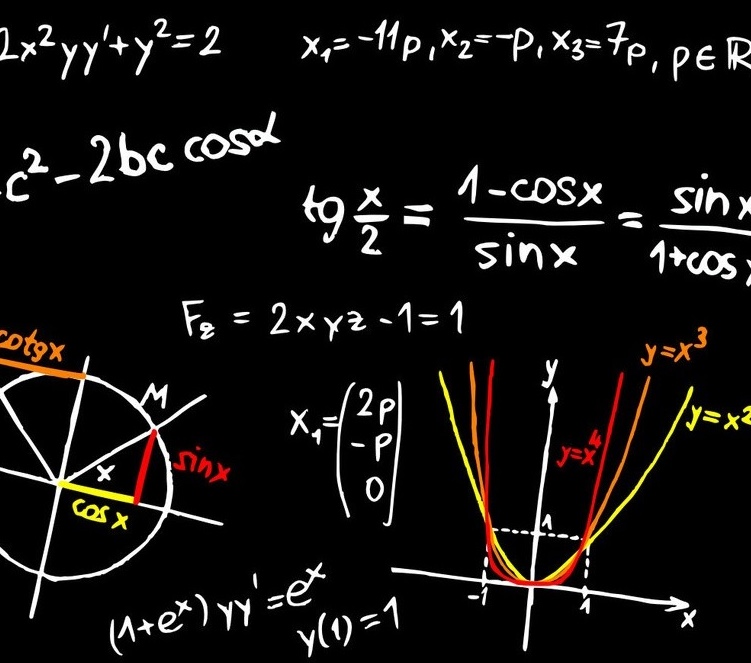 2x²yy'+y²=2
x₁=-11p, x₂=-p, x₃=7p, p∈ℝ
c²-2bc cosα
tg x/2 = (1-cosx)/(sinx) = (sinx)/(1+cosx
F₂ = 2xyz-1=1
cotgx
y=x³
M
y
x₁=(2p
-p
0)
y=x⁴
y=x²
x
sinx
cosx
1
-1
1
x
(1+eˣ)yy'=eˣ
y(1)=1